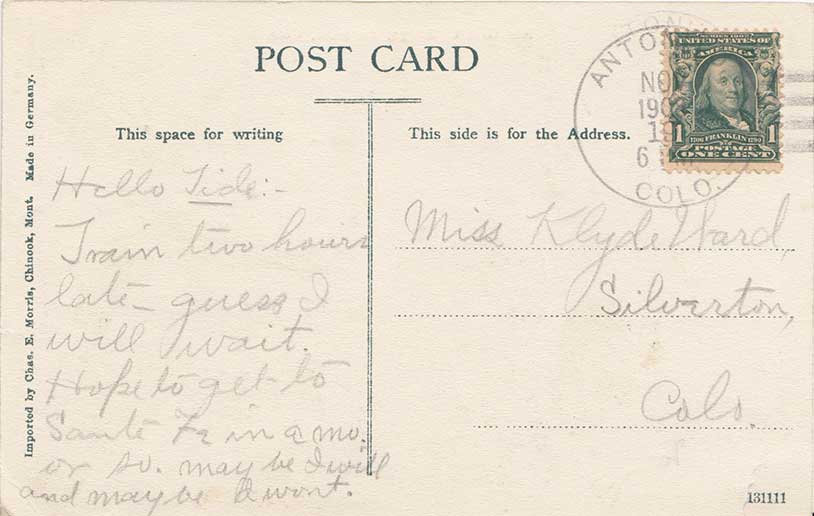 POST CARD
This space for writing
This side is for the Address.
Hello Tide:-
Train two hours
late- guess I
will wait.
Hope to get to
Santa Fe in a mo.
or so. may be I will
and maybe I wont.
Miss Klyde Ward,
Silverton,
Colo.
ANTO
NO
190
6
COLO.
SERIES 1902
UNITED STATES OF
AMERICA
1 1706 FRANKLIN 1790 1
POSTAGE
ONE CENT
Imported by Chas. E. Morris, Chinook, Mont. Made in Germany.
131111